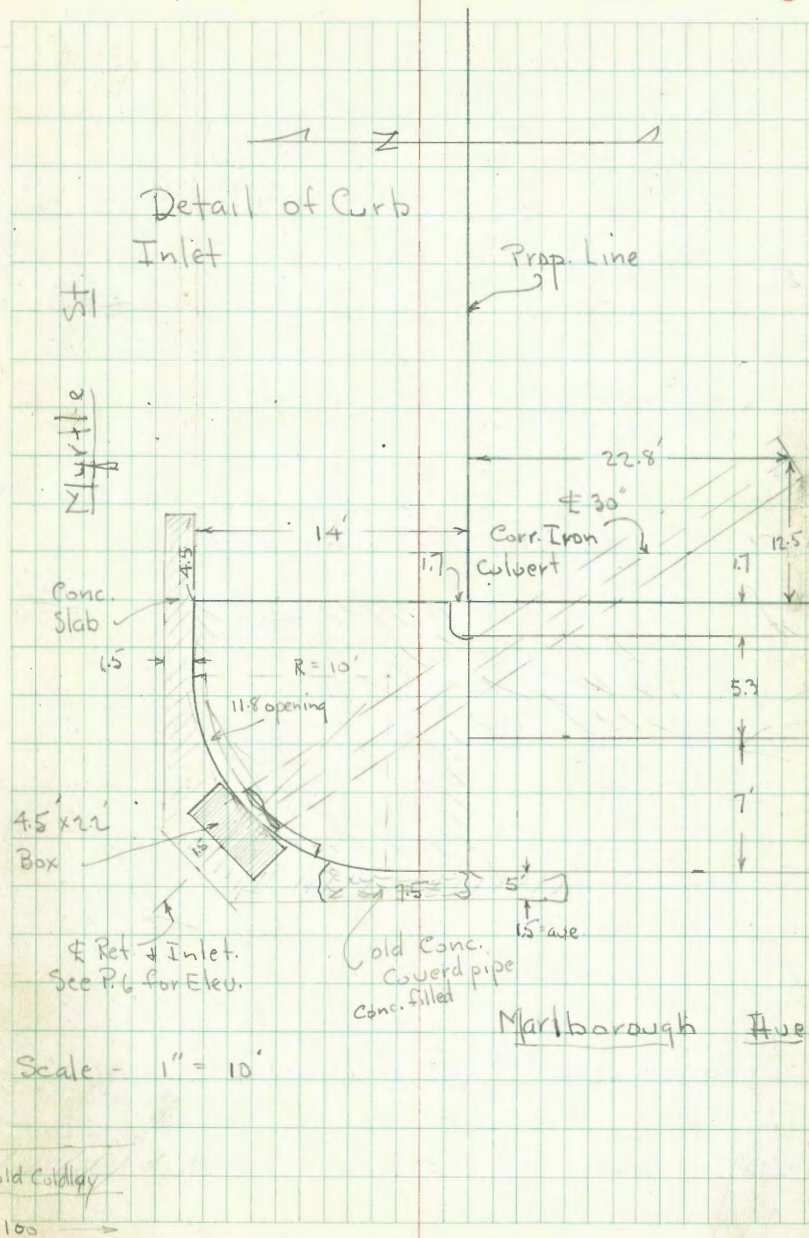 N
Detail of Curb
Inlet
Prop. Line
Myrtle St
22.8'
℄ 30"
Corr. Iron
Culvert
12.5
14'
1.7
1.7
4.5
Conc.
Slab
1.5
R = 10'
5.3
11.8 opening
7'
4.5' x 2.2'
Box
7.5
5'
1.5 ave
℄ Ret & Inlet.
See P. 6 for Elev.
old Conc.
Coverd pipe
Conc. filled
Marlborough Ave
Scale - 1" = 10'
100